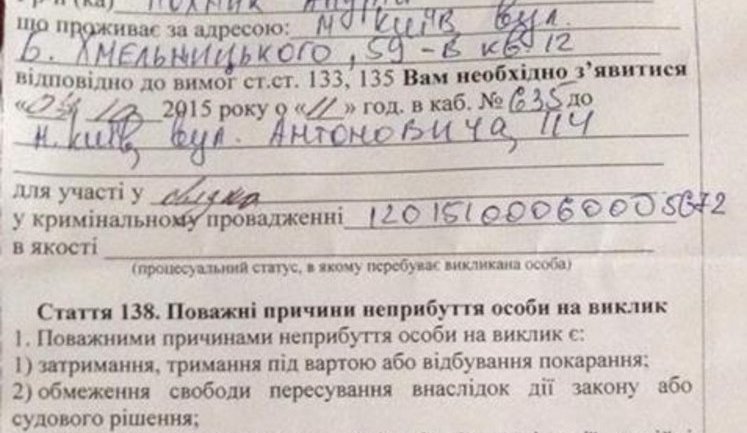 що проживає за адресою: м Київ вул.
Б. Хмельницького, 59-В кв 12
відповідно до вимог ст.ст. 133, 135 Вам необхідно з’явитися
2015 року о «11» год. в каб. № 635 до
м. Київ, вул. Антоновича, 114
для участі у
у кримінальному провадженні
в якості
(процесуальний статус, в якому перебуває викликана особа)
Стаття 138. Поважні причини неприбуття особи на виклик
1. Поважними причинами неприбуття особи на виклик є:
1) затримання, тримання під вартою або відбування покарання;
2) обмеження свободи пересування внаслідок дії закону або
судового рішення;